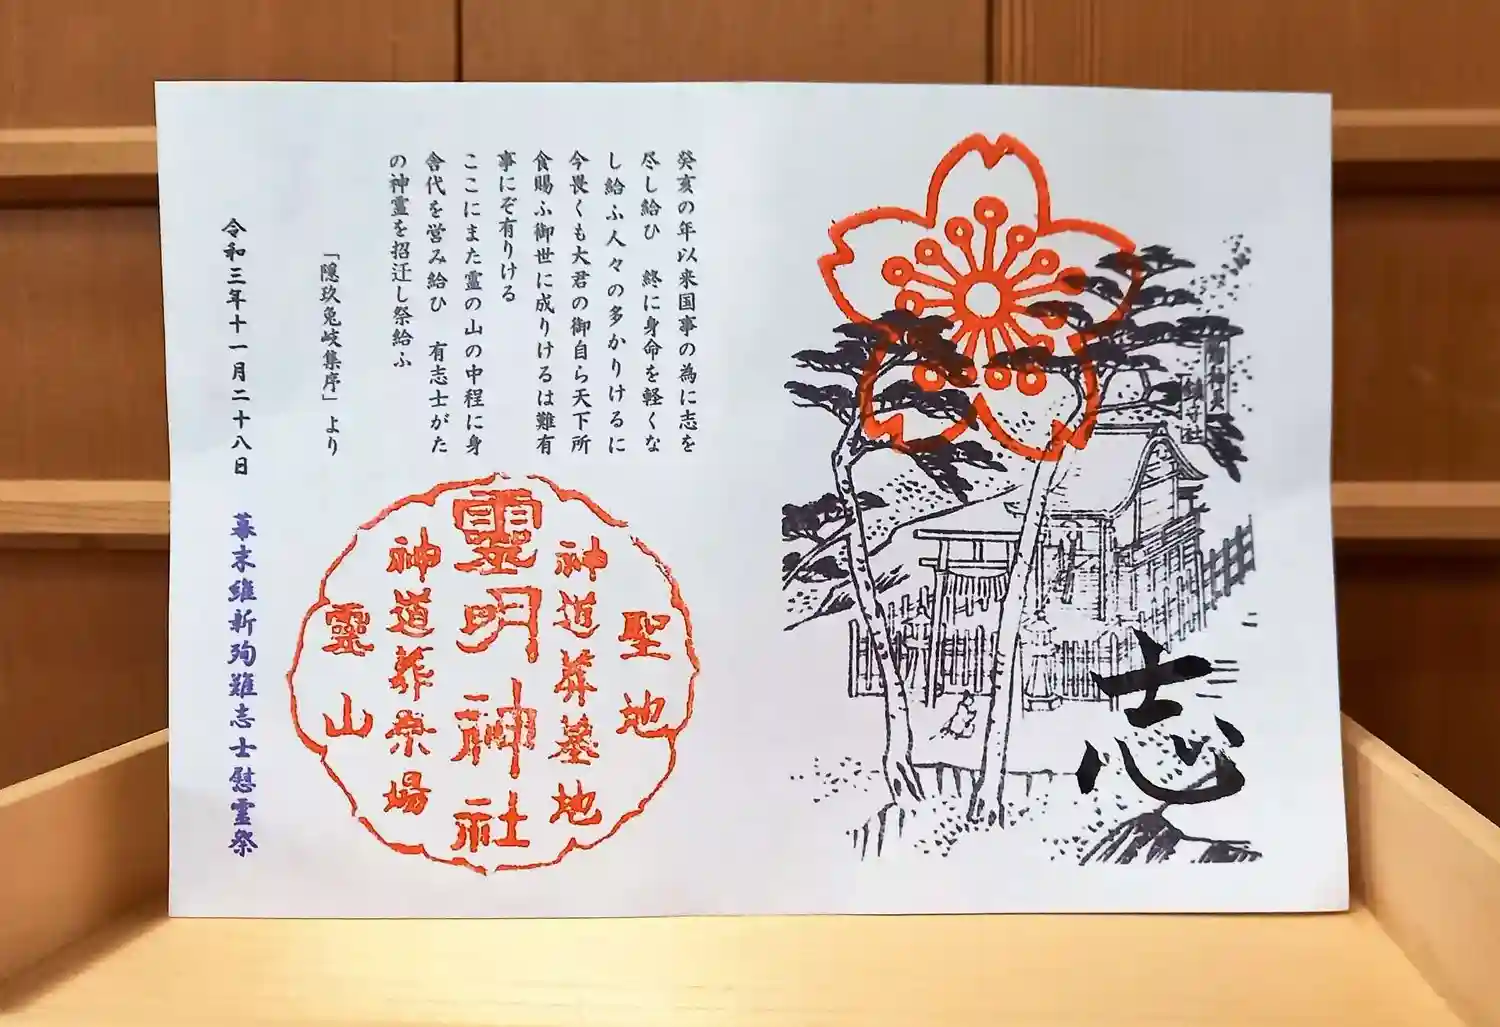 志
癸亥の年以来国事の為に志を
尽し給ひ　終に身命を軽くな
し給ふ人々の多かりけるに
今畏くも大君の御自ら天下所
食賜ふ御世に成りけるは難有
事にぞ有りける
ここにまた霊の山の中程に身
舎代を営み給ひ　有志士がた
の神霊を招迁し祭給ふ
「隠玖兔岐集序」より
聖地
神道葬墓地
靈明神社
神道葬祭場
靈山
令和三年十一月二十八日　幕末維新殉難志士慰霊祭